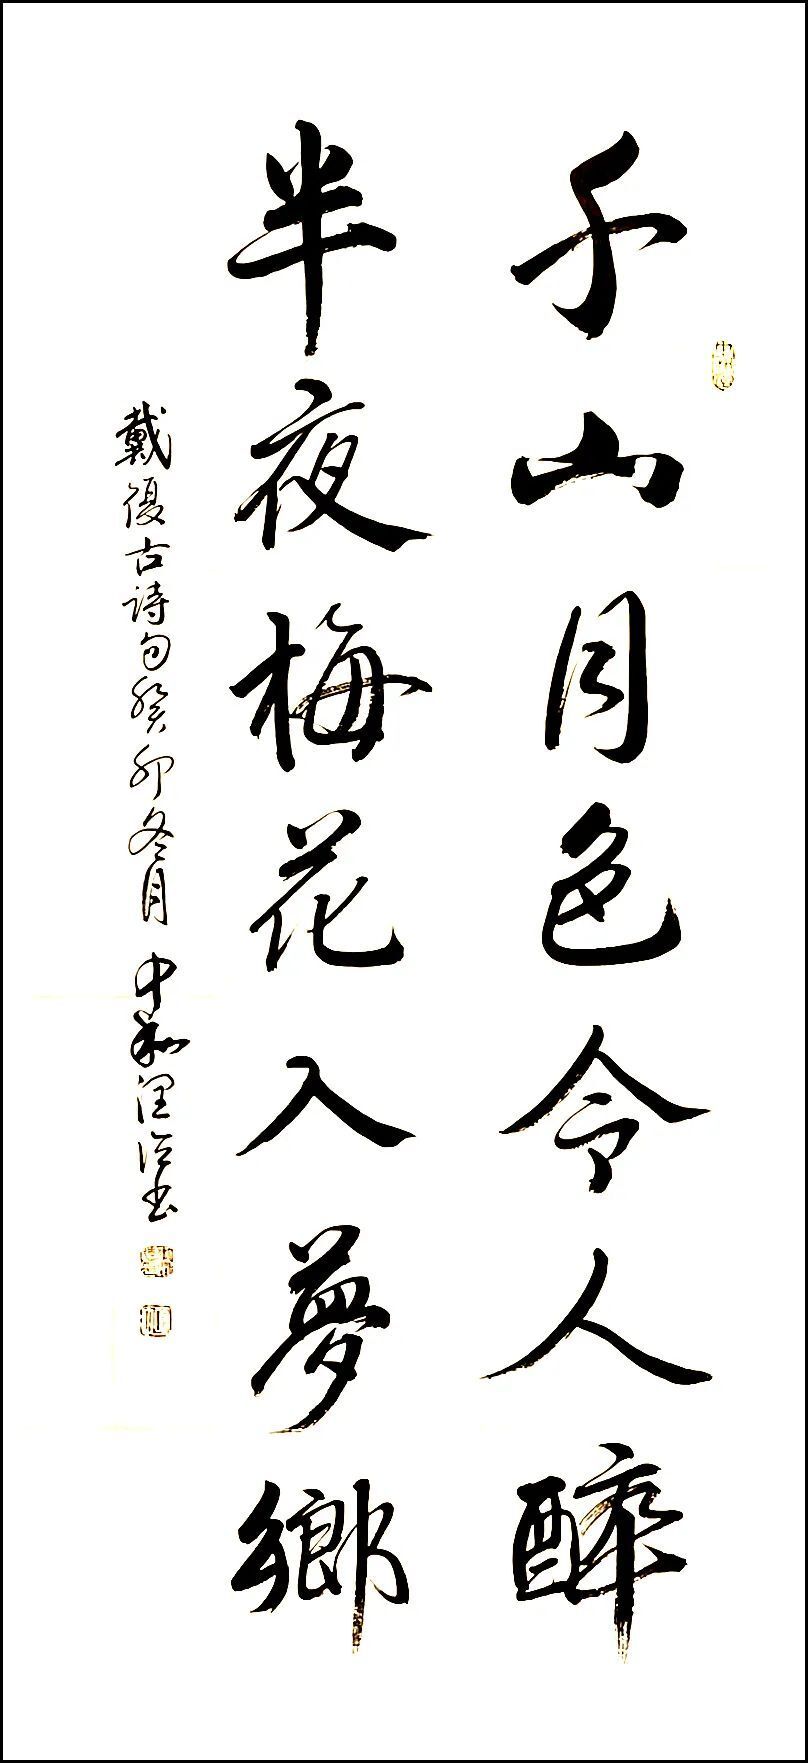 千山月色令人醉
半夜梅花入夢鄉
戴復古詩句癸卯冬月中和潤澤书